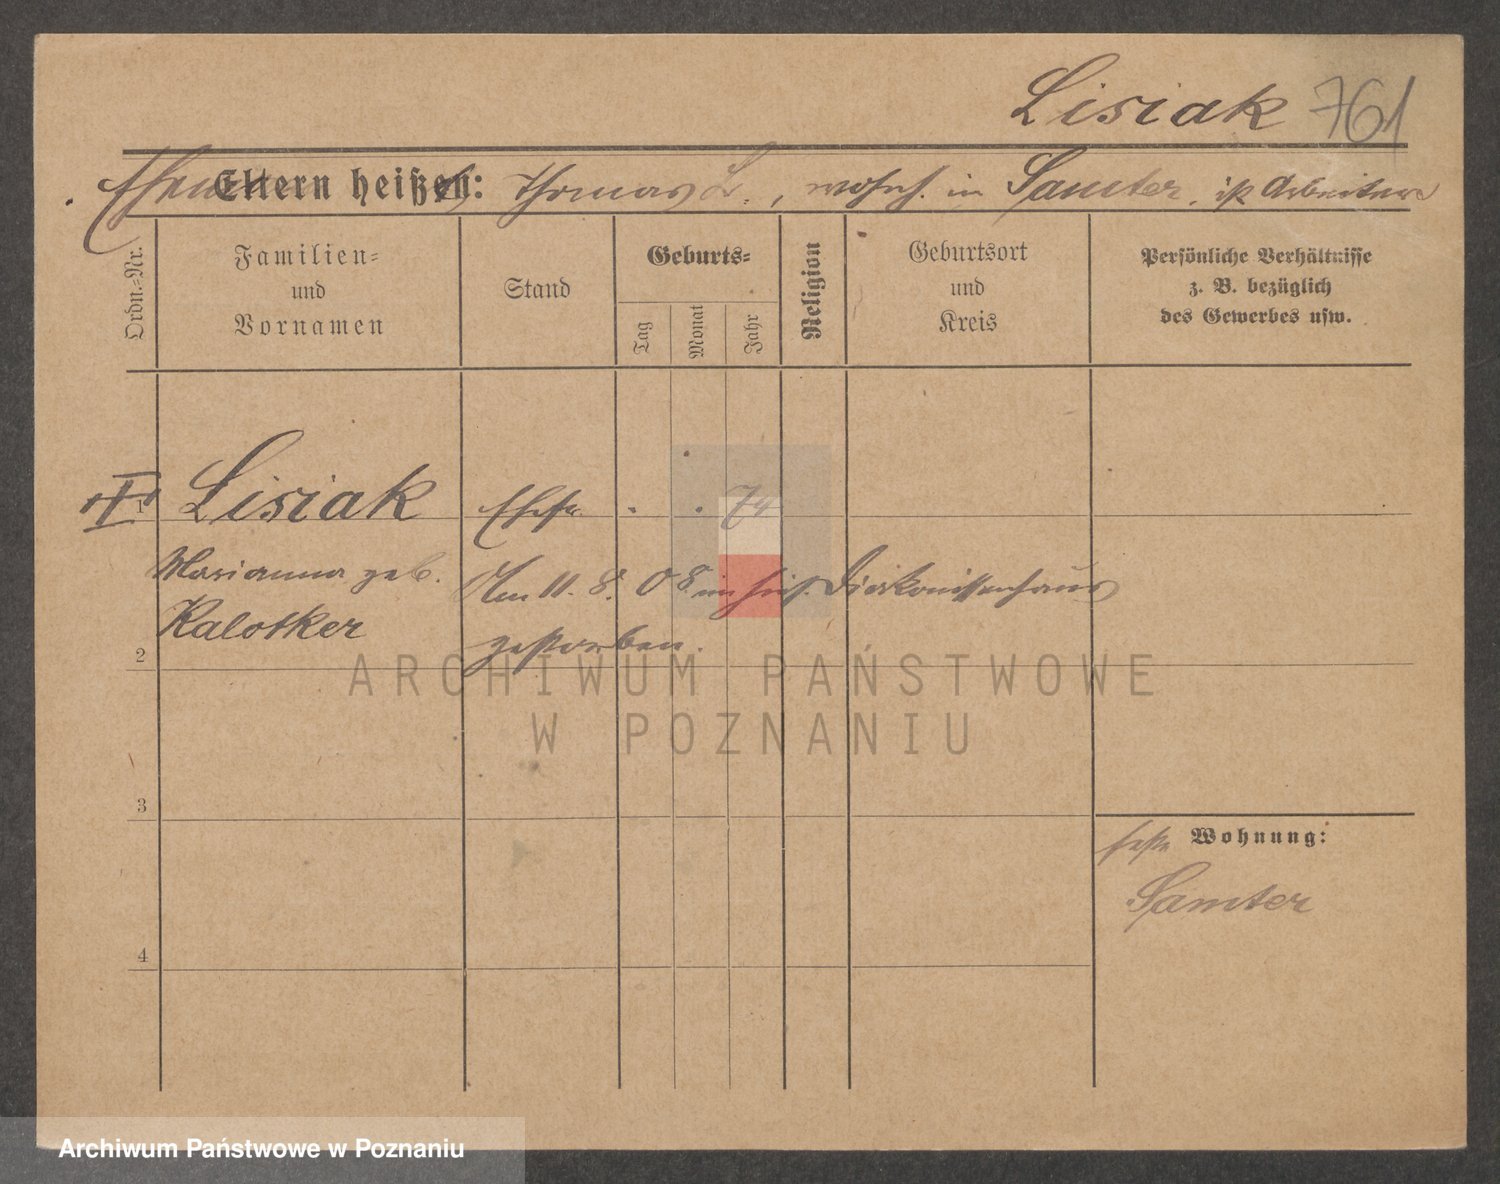 Lisiak 761
Ehemann Eltern heißen: Thomas L., wohnh. in Samter, ist Arbeiter
Ordn.-Nr.
Familien-
und
Vornamen
Stand
Geburts-
Tag
Monat
Jahr
Religion
Geburtsort
und
Kreis
Persönliche Verhältnisse
z. B. bezüglich
des Gewerbes usw.
1 Lisiak Ehefr. . . 74
Marianna geb. Am 11. 8. 08 im hies. Diakonissenhaus
Kalotker gestorben.
2
ARCHIWUM PAŃSTWOWE
W POZNANIU
3
Wohnung:
Samter
4
Archiwum Państwowe w Poznaniu